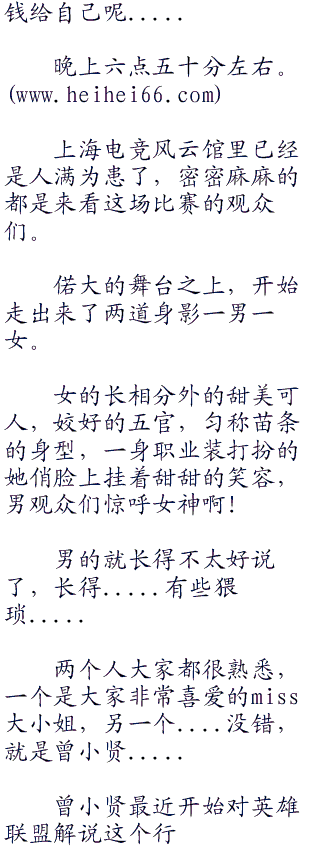 钱给自己呢.....
晚上六点五十分左右。
(www.heihei66.com)
上海电竞风云馆里已经
是人满为患了，密密麻麻的
都是来看这场比赛的观众
们。
偌大的舞台之上，开始
走出来了两道身影一男一
女。
女的长相分外的甜美可
人，姣好的五官，匀称苗条
的身型，一身职业装打扮的
她俏脸上挂着甜甜的笑容，
男观众们惊呼女神啊!
男的就长得不太好说
了，长得.....有些猥
琐.....
两个人大家都很熟悉，
一个是大家非常喜爱的miss
大小姐，另一个....没错，
就是曾小贤.....
曾小贤最近开始对英雄
联盟解说这个行